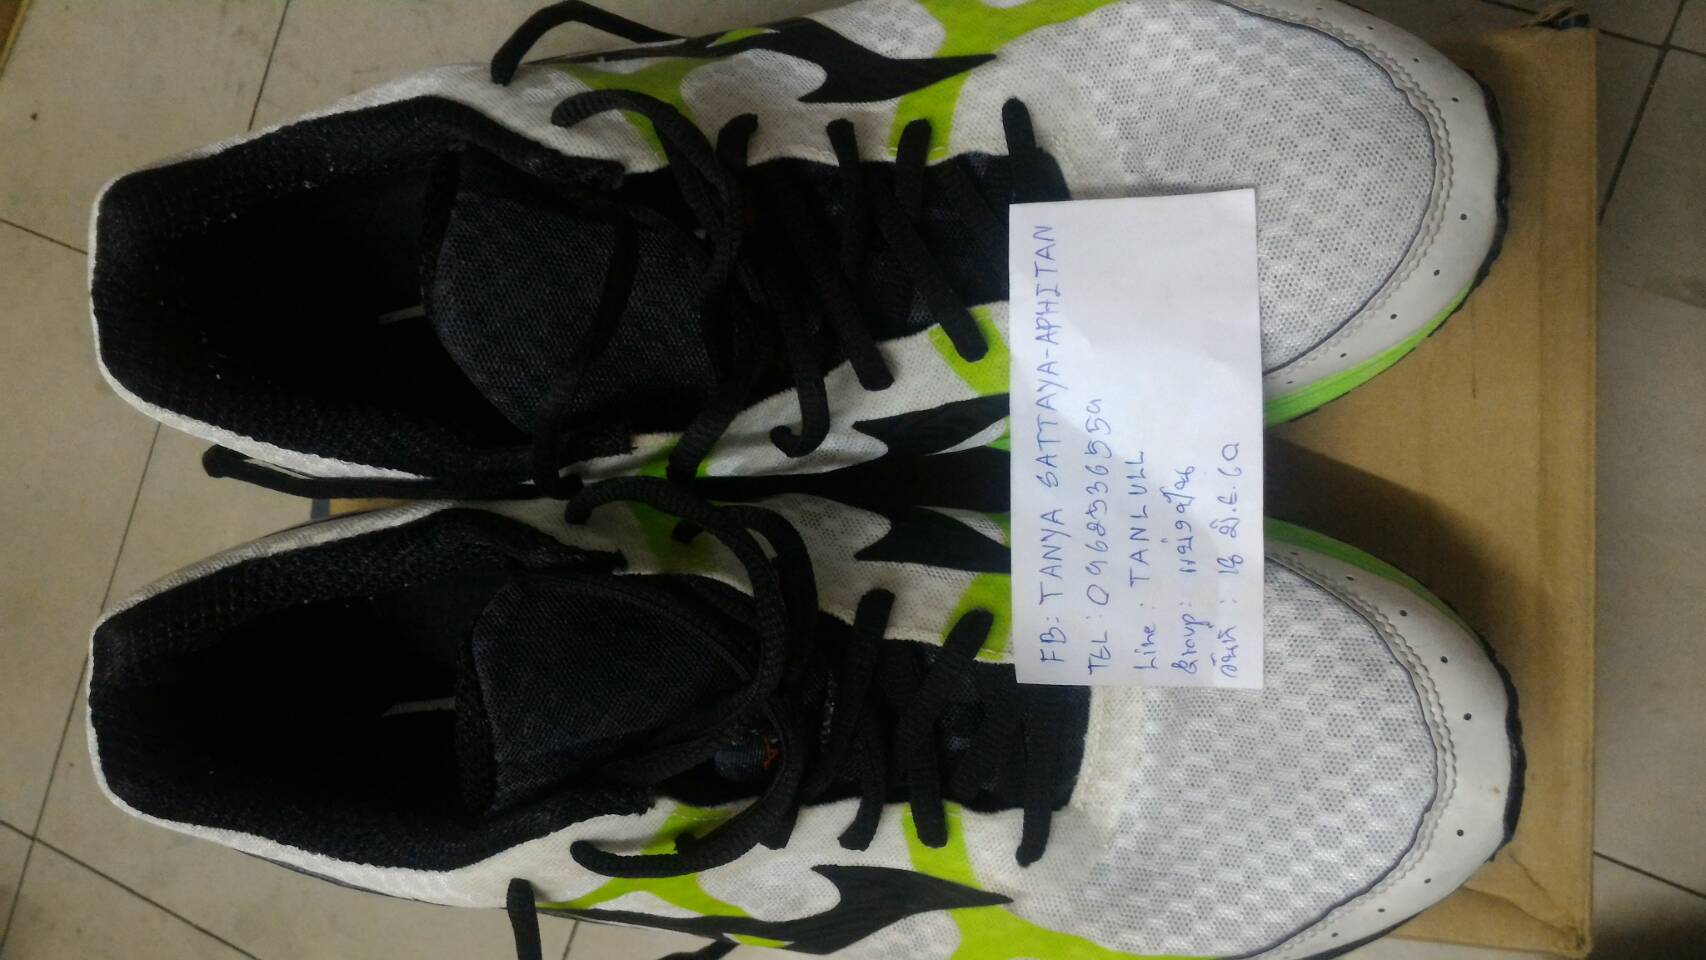 FB: TANYA SATTAYA-APHITAN
TEL: 0968536559
Line: TANLULL
Group:
วันที่ : 18 มิ.ย. 60